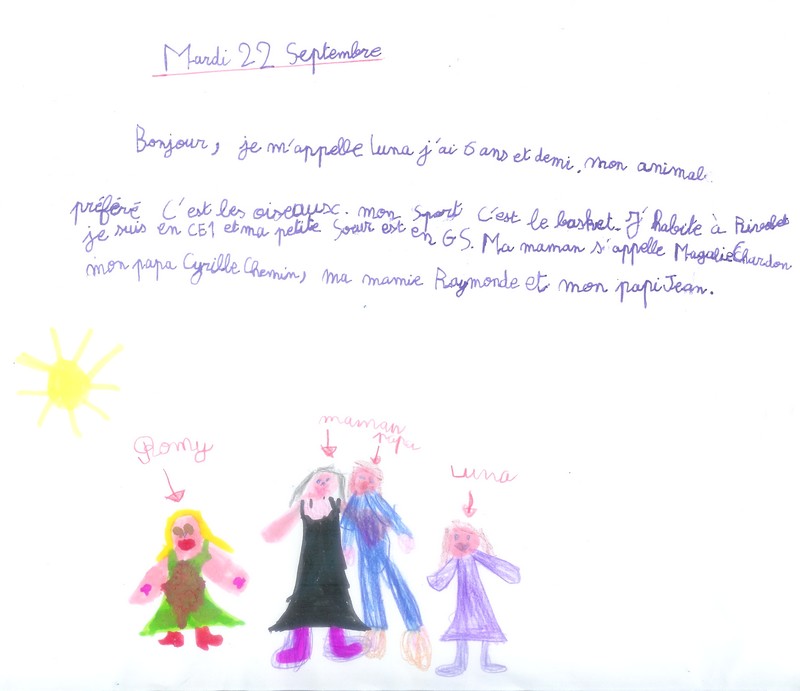 Mardi 22 Septembre
Bonjour, je m'appelle Luna j'ai 6 ans et demi. mon animal
préféré C'est les oiseausc. mon sport C'est le basket. J'habite à
je suis en CE1 et ma petite Sœur est en GS. Ma maman s'appelle Magalie Chardon
mon papa Cyrille Chemin, ma mamie Raymonde et mon papi Jean.
maman
papa
Romy
Luna